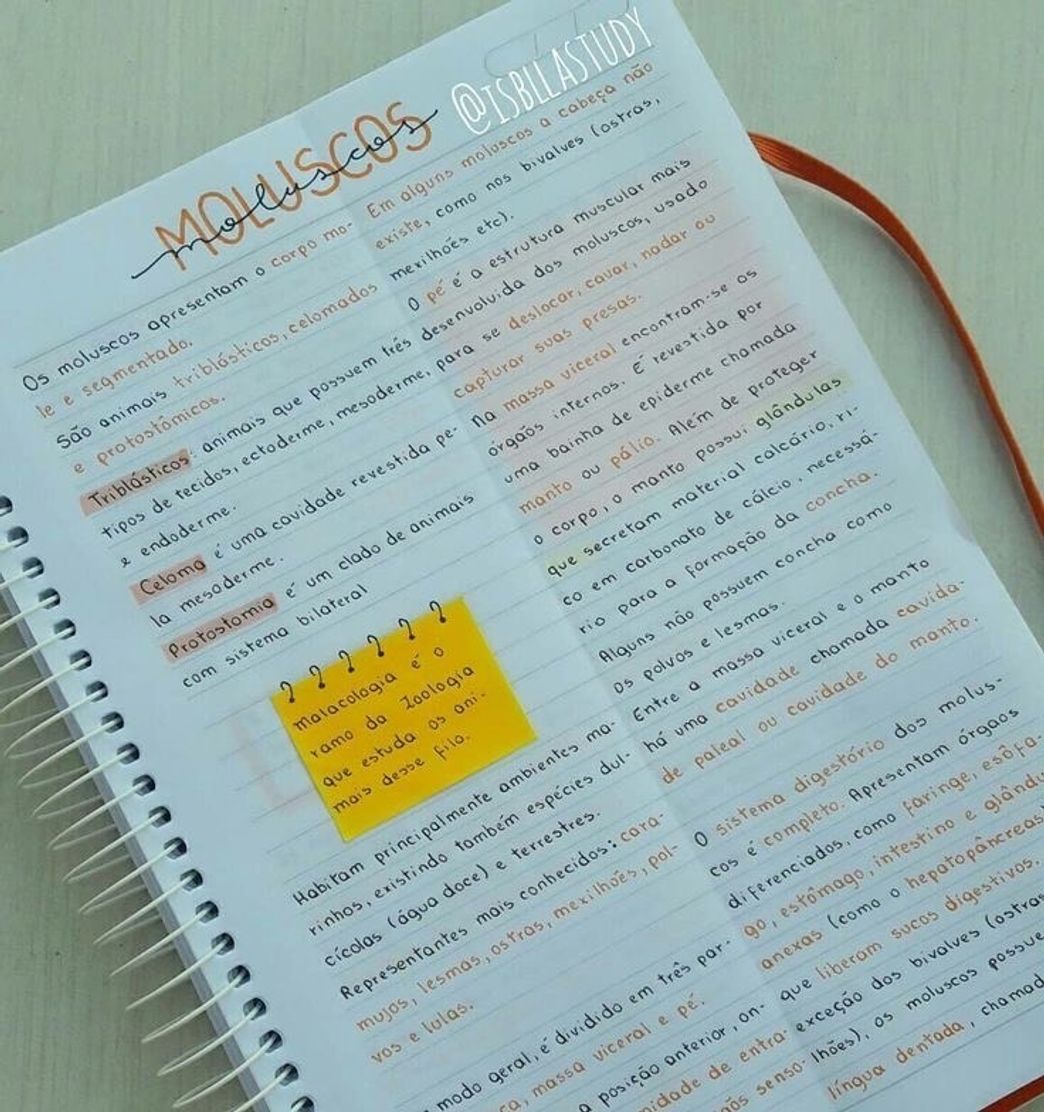 @ISBLLASTUDY
MOLUSCOS
moluscos
Os moluscos apresentam o corpo mo-
le e segmentado.
São animais triblásticos, celomados
e protostômicos.
Triblásticos: animais que possuem três
tipos de tecidos, ectoderme, mesoderme,
e endoderme.
Celoma é uma cavidade revestida pe-
la mesoderme.
Protostomia é um clado de animais
com sistema bilateral
Malacologia é o
ramo da Zoologia
que estuda os ani-
mais desse filo.
Habitam principalmente ambientes ma-
rinhos, existindo também espécies dul-
cícolas (água doce) e terrestres.
Representantes mais conhecidos: cara-
mujos, lesmas, ostras, mexilhões, pol-
vos e lulas.
modo geral, é dividido em três par-
ça, massa viceral e pé.
a posição anterior, on-
midade de entra-
senso-
Em alguns moluscos a cabeça não
existe, como nos bivalves (ostras,
mexilhões etc).
O pé é a estrutura muscular mais
desenvolvida dos moluscos, usado
para se deslocar, cavar, nadar ou
capturar suas presas.
Na massa viceral encontram-se os
órgãos internos. É revestida por
uma bainha de epiderme chamada
manto ou pálio. Além de proteger
o corpo, o manto possui glândulas
que secretam material calcário, ri-
co em carbonato de cálcio, necessá-
rio para a formação da concha.
Alguns não possuem concha como
os polvos e lesmas.
Entre a massa viceral e o manto
há uma cavidade chamada cavida-
de paleal ou cavidade do manto.
O sistema digestório dos molus-
cos é completo. Apresentam órgãos
diferenciados, como faringe, esôfa-
go, estômago, intestino e glându
anexas (como o hepatopâncreas
que liberam sucos digestivos.
exceção dos bivalves (ostras
lhões), os moluscos possue
língua dentada, chamad